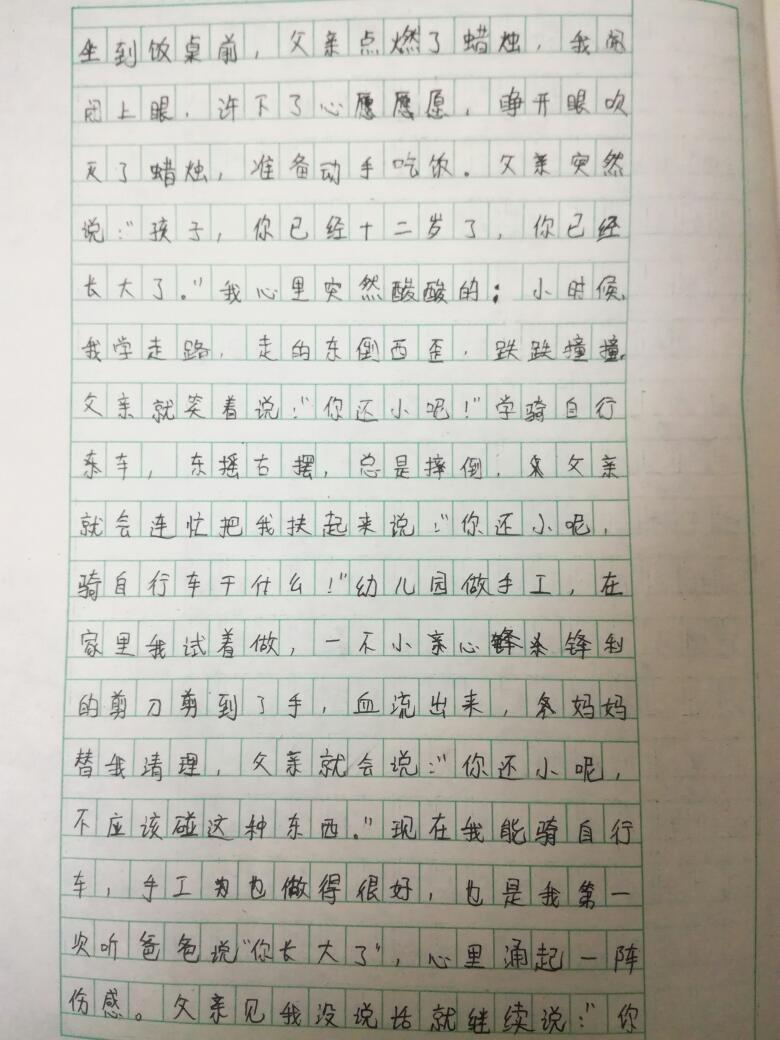 坐到饭桌前，父亲点燃了蜡烛，我闭
闭上眼，许下了心愿愿愿，睁开眼吹
灭了蜡烛，准备动手吃饭。父亲突然
说：“孩子，你已经十二岁了，你已经
长大了。”我心里突然酸酸的；小时候，
我学走路，走的东倒西歪，跌跌撞撞，
父亲就笑着说：“你还小呢！”学骑自行
车，东摇右摆，总是摔倒，父亲
就会连忙把我扶起来说：“你还小呢，
骑自行车干什么！”幼儿园做手工，在
家里我试着做，一不小心锋利
的剪刀剪到了手，血流出来，妈妈
替我清理，父亲就会说：“你还小呢，
不应该碰这种东西。”现在我能骑自行
车，手工也做得很好，也是我第一
次听爸爸说“你长大了”，心里涌起一阵
伤感。父亲见我没说话就继续说：“你